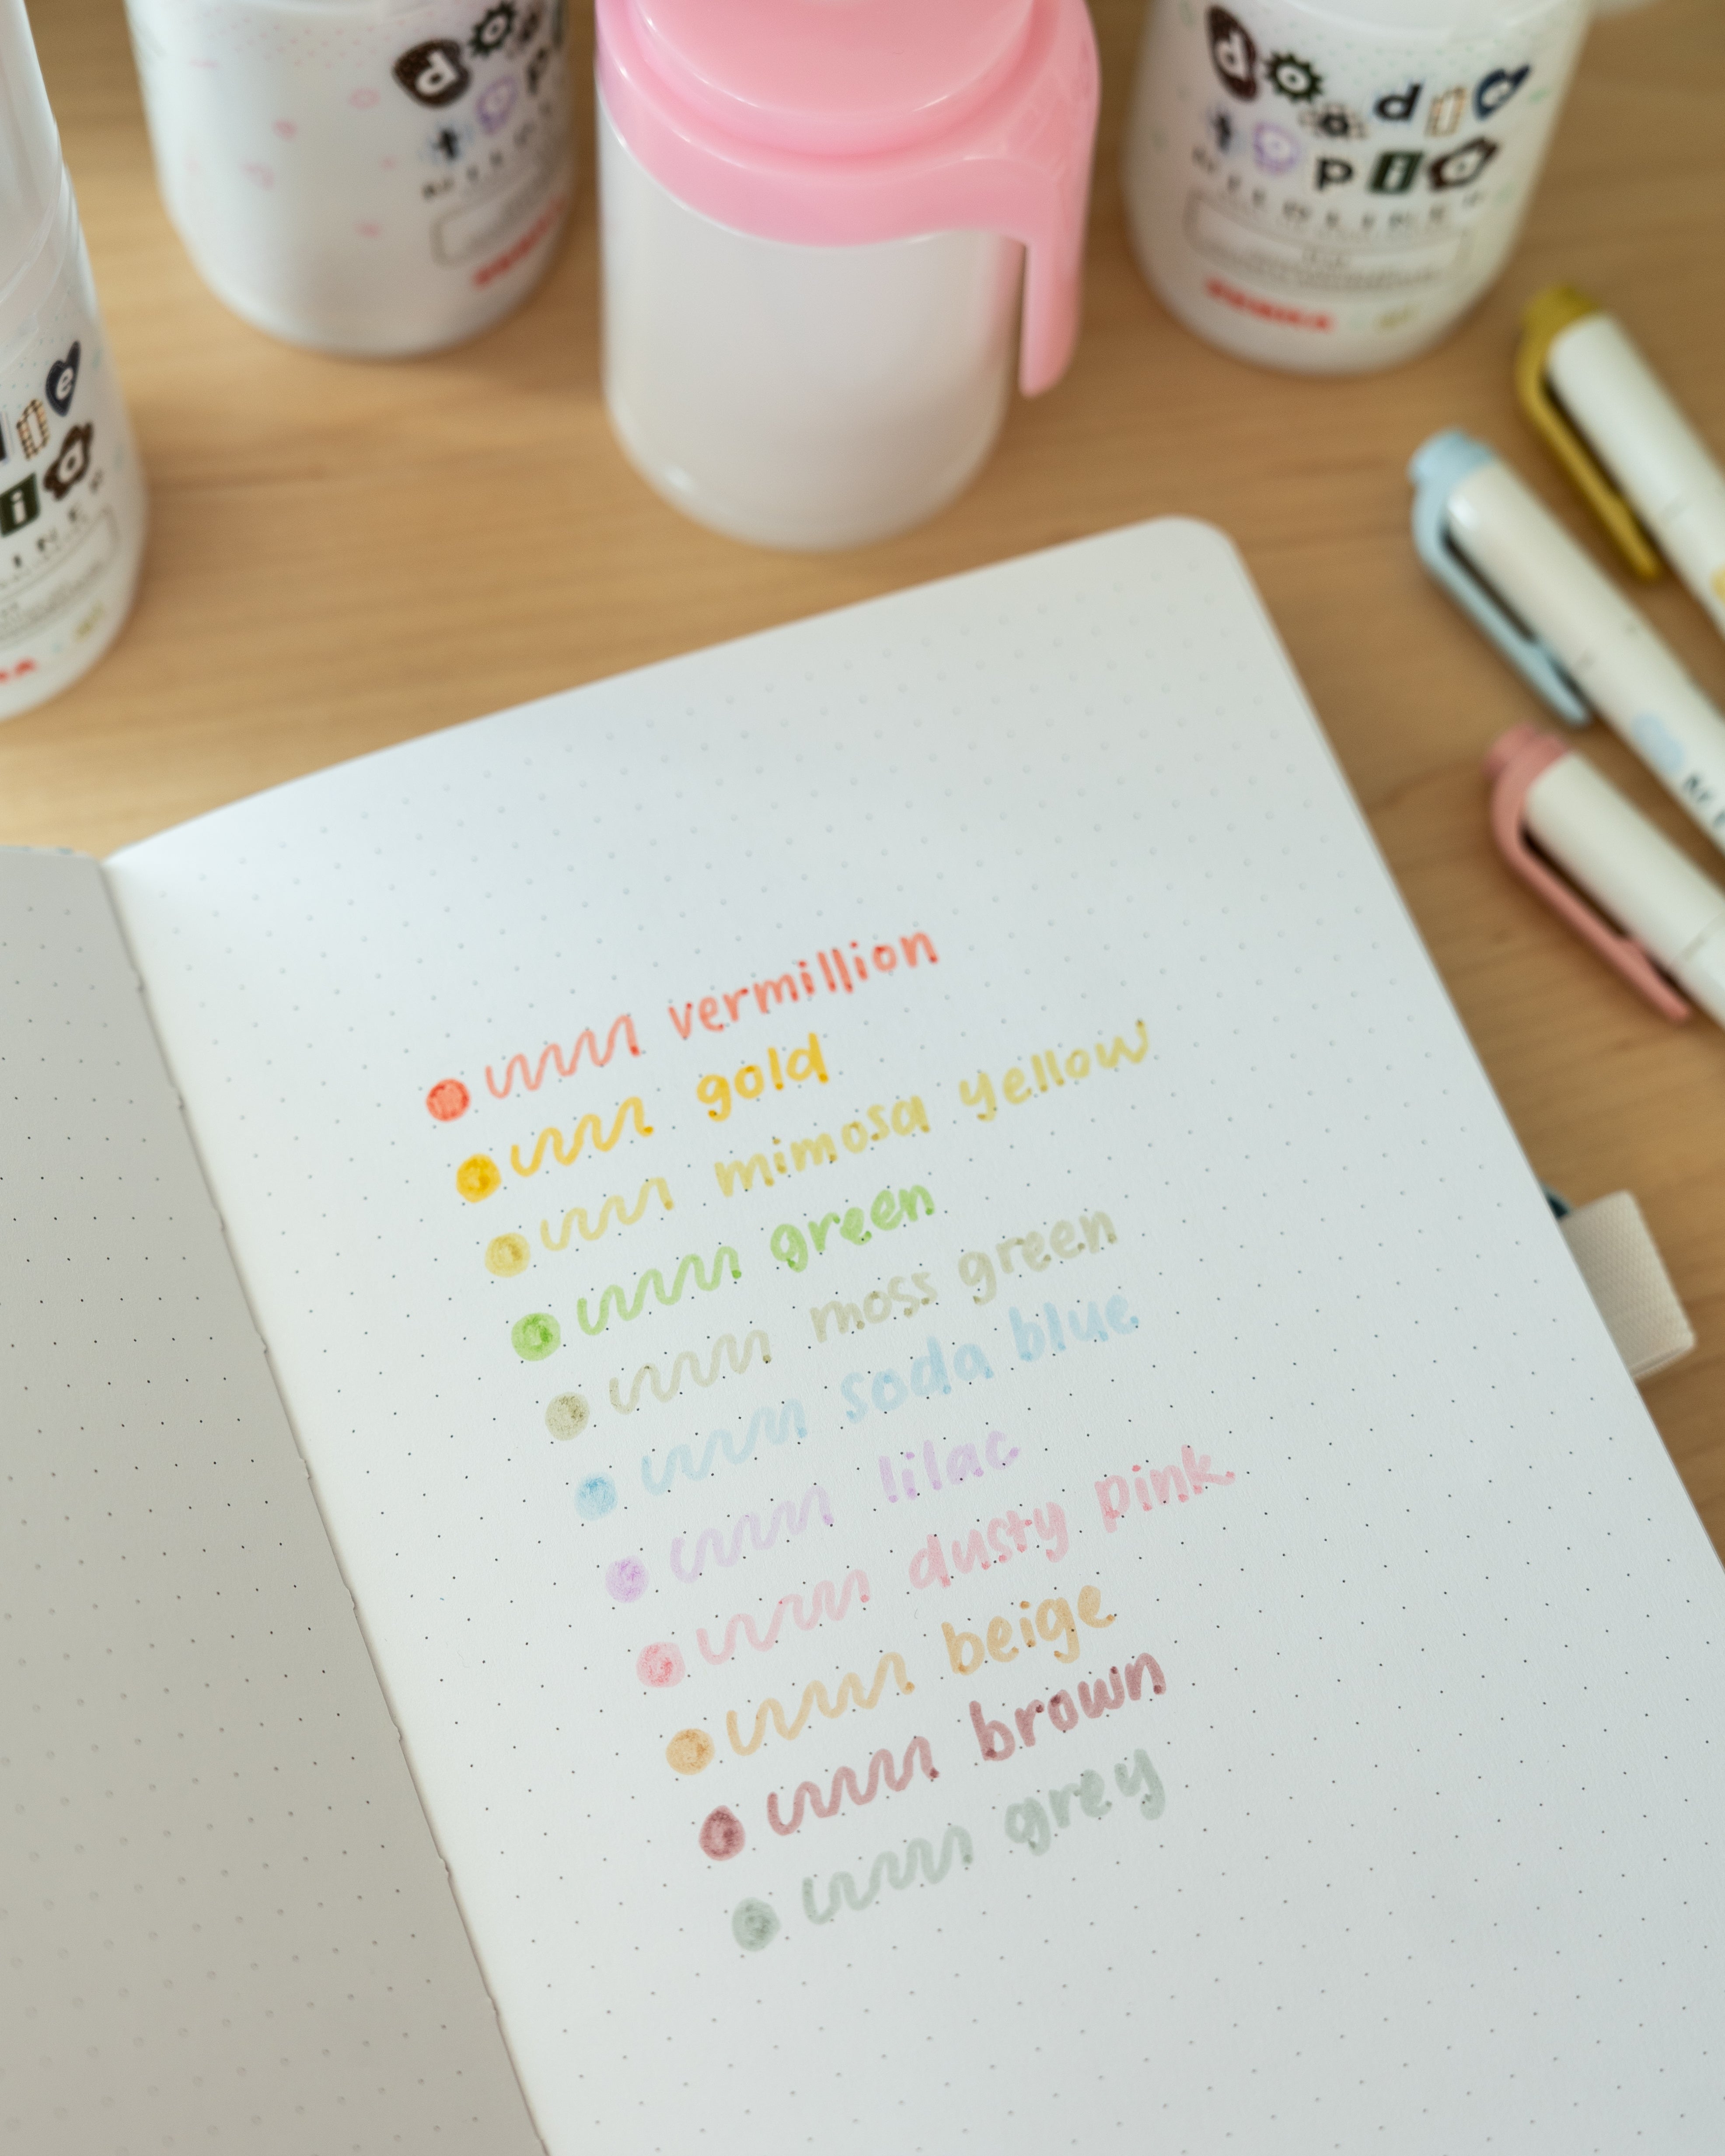 doodle
topia
vermillion
gold
mimosa yellow
green
moss green
soda blue
lilac
dusty pink
beige
brown
grey